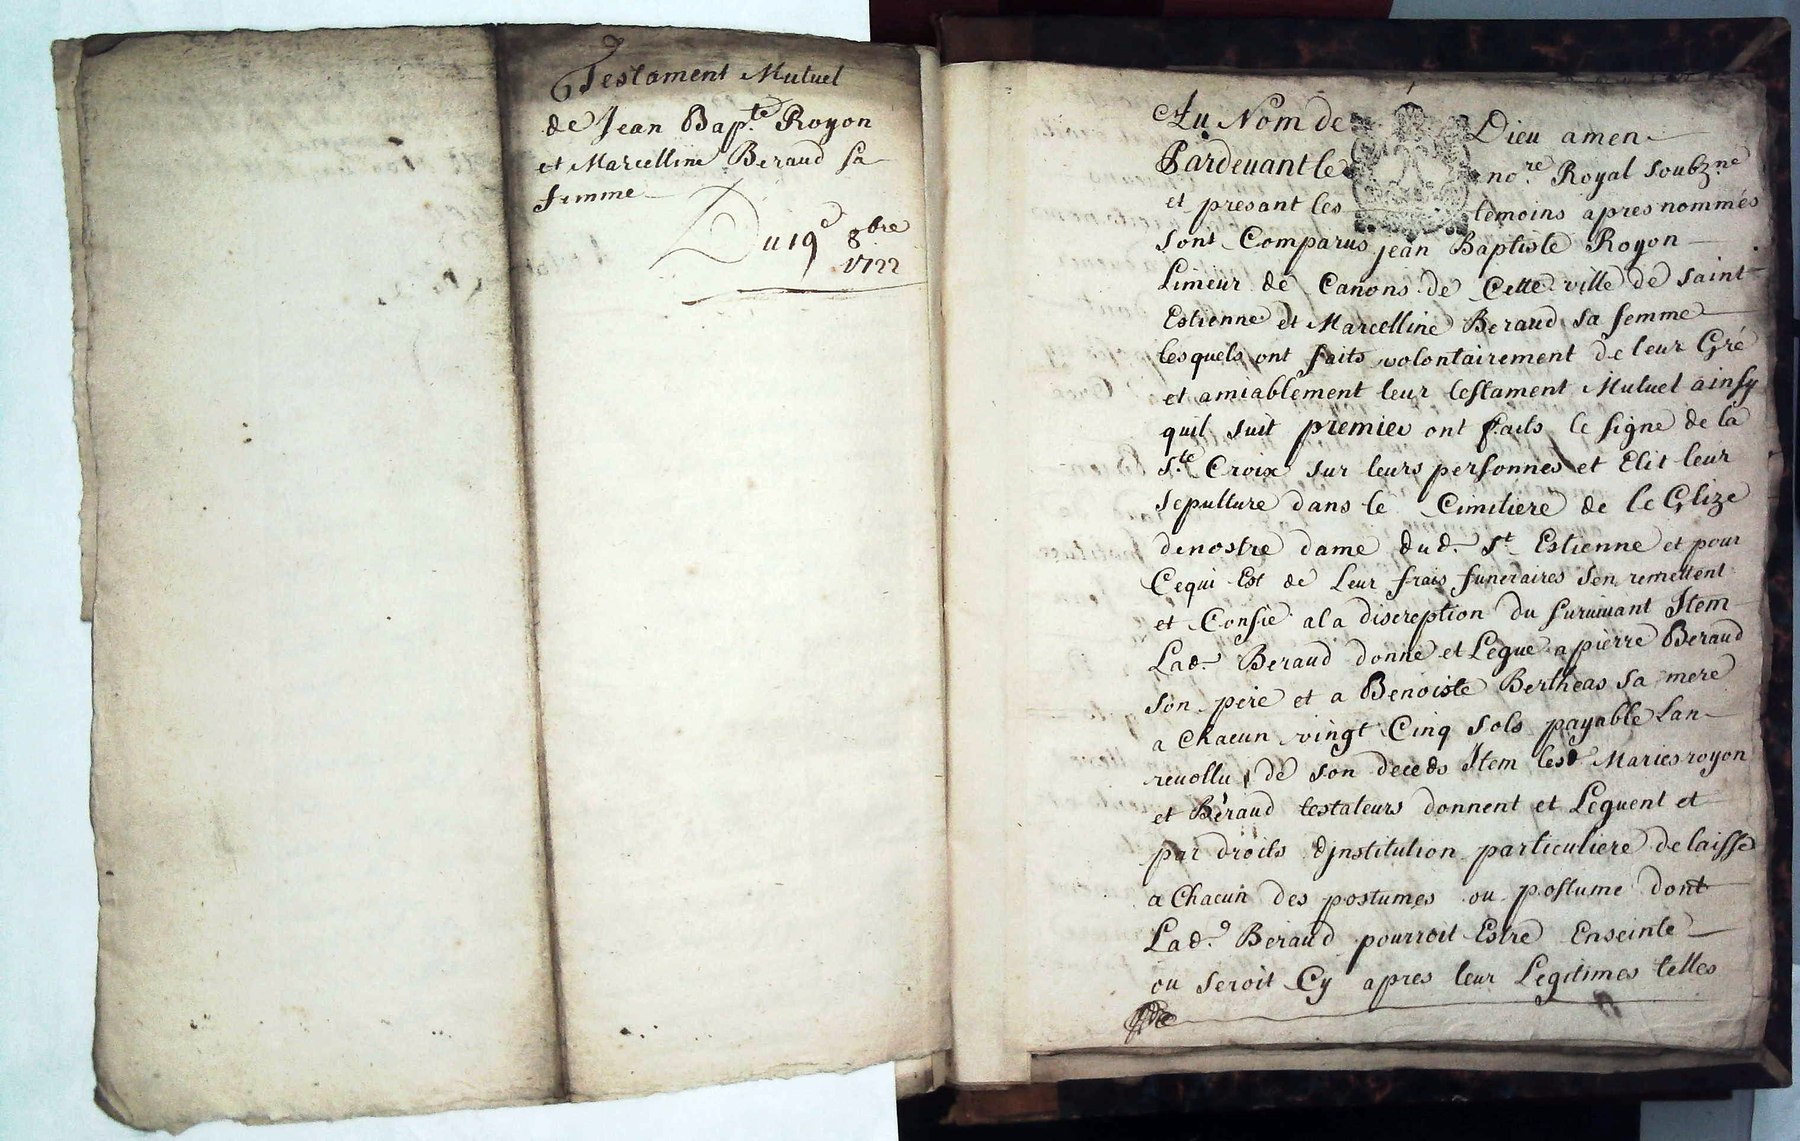 Testament Mutuel
de Jean Bapte Royon
et Marcelline Beraud sa
femme
Du 19e 8bre
1722
Au Nom de Dieu amen
Pardevant le nore Royal soubzne
et presant les temoins apres nommés
sont Comparus jean Baptiste Royon
Limeur de Canons de Cette ville de saint
Estienne et Marcelline Beraud sa femme
lesquels ont faits volontairement de leur Gré
et amiablement leur testament Mutuel ainsy
quil suit premier ont faits le signe de la
Ste Croix sur leurs personnes et Elit leur
sepulture dans le Cimitiere de le Glize
denostre dame dud. St Estienne et pour
Cequi Est de Leur frais funeraires sen remettent
et Confie ala discreption du survivant Item
Lad. Beraud donne et Legue a pierre Beraud
son pere et a Benoiste Bertheas sa mere
a Chacun vingt Cinq sols payable Lan
revollu de son deceds Item lesd Maries royon
et Beraud testateurs donnent et Leguent et
par droits djnstitution particuliere delaisse
a Chacun des postumes ou postume dont
Lad.e Beraud pourroit Estre Enseinte
ou seroit Cy apres leur Legitimes telles